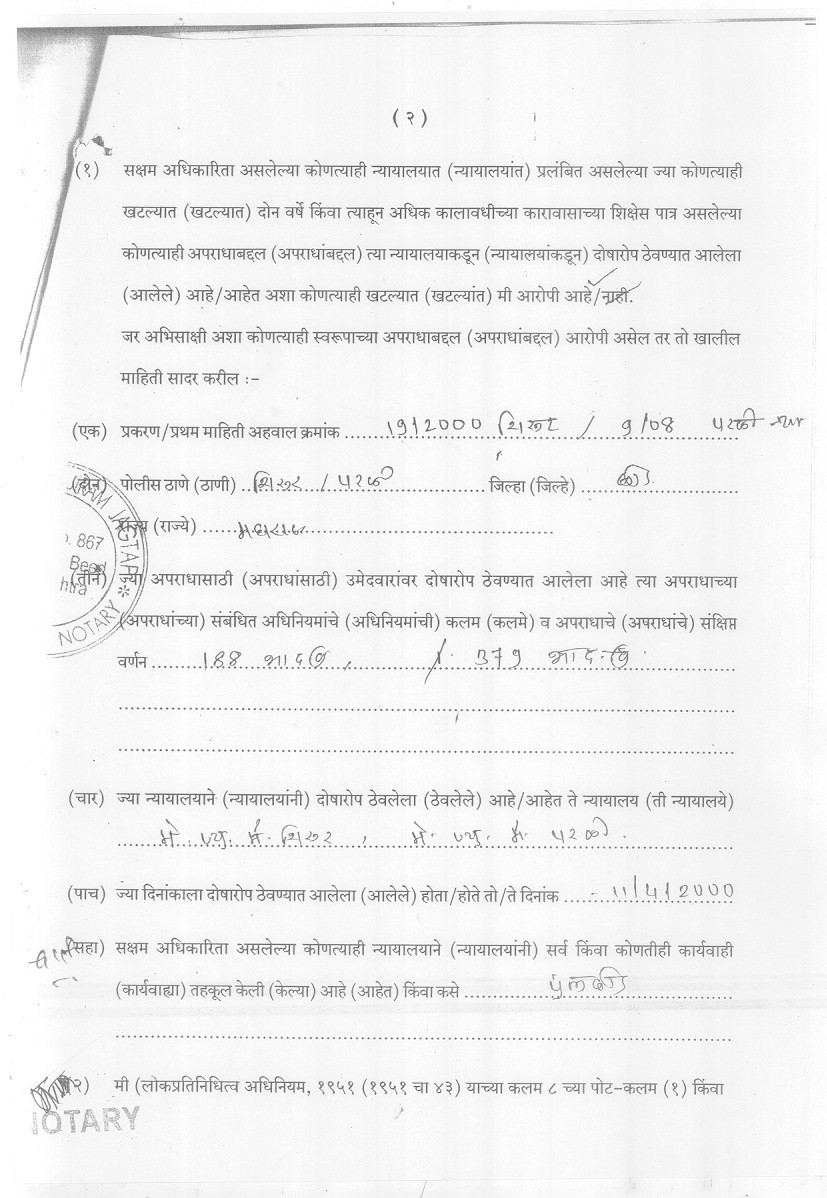 (२)
(१) सक्षम अधिकारिता असलेल्या कोणत्याही न्यायालयात (न्यायालयांत) प्रलंबित असलेल्या ज्या कोणत्याही
खटल्यात (खटल्यात) दोन वर्षे किंवा त्याहून अधिक कालावधीच्या कारावासाच्या शिक्षेस पात्र असलेल्या
कोणत्याही अपराधाबद्दल (अपराधांबद्दल) त्या न्यायालयाकडून (न्यायालयांकडून) दोषारोप ठेवण्यात आलेला
(आलेले) आहे/आहेत अशा कोणत्याही खटल्यात (खटल्यांत) मी आरोपी आहे/नाही.
जर अभिसाक्षी अशा कोणत्याही स्वरूपाच्या अपराधाबद्दल (अपराधांबद्दल) आरोपी असेल तर तो खालील
माहिती सादर करील :-
(एक) प्रकरण/प्रथम माहिती अहवाल क्रमांक ..... 19/2000 शिरूर / 9/08 परळी
(दोन) पोलीस ठाणे (ठाणी) .. शिरूर / परळी ..... जिल्हा (जिल्हे) .....
राज्य (राज्ये) ..... महाराष्ट्र .....
JAGTAP
867
Beed
NOTARY
(तीन) ज्या अपराधासाठी (अपराधांसाठी) उमेदवारांवर दोषारोप ठेवण्यात आलेला आहे त्या अपराधाच्या
(अपराधांच्या) संबंधित अधिनियमांचे (अधिनियमांची) कलम (कलमे) व अपराधाचे (अपराधांचे) संक्षिप्त
वर्णन ..... 188 भादवि , 379 भादवि
(चार) ज्या न्यायालयाने (न्यायालयांनी) दोषारोप ठेवलेला (ठेवलेले) आहे/आहेत ते न्यायालय (ती न्यायालये)
मे. ज्यु. मॅ. शिरूर , मे. ज्यु. मॅ. परळी.
(पाच) ज्या दिनांकाला दोषारोप ठेवण्यात आलेला (आलेले) होता/होते तो/ते दिनांक ..... 11/4/2000
(सहा) सक्षम अधिकारिता असलेल्या कोणत्याही न्यायालयाने (न्यायालयांनी) सर्व किंवा कोणतीही कार्यवाही
(कार्यवाह्या) तहकूल केली (केल्या) आहे (आहेत) किंवा कसे .....
(२) मी (लोकप्रतिनिधित्व अधिनियम, १९५१ (१९५१ चा ४३) याच्या कलम ८ च्या पोट-कलम (१) किंवा
NOTARY